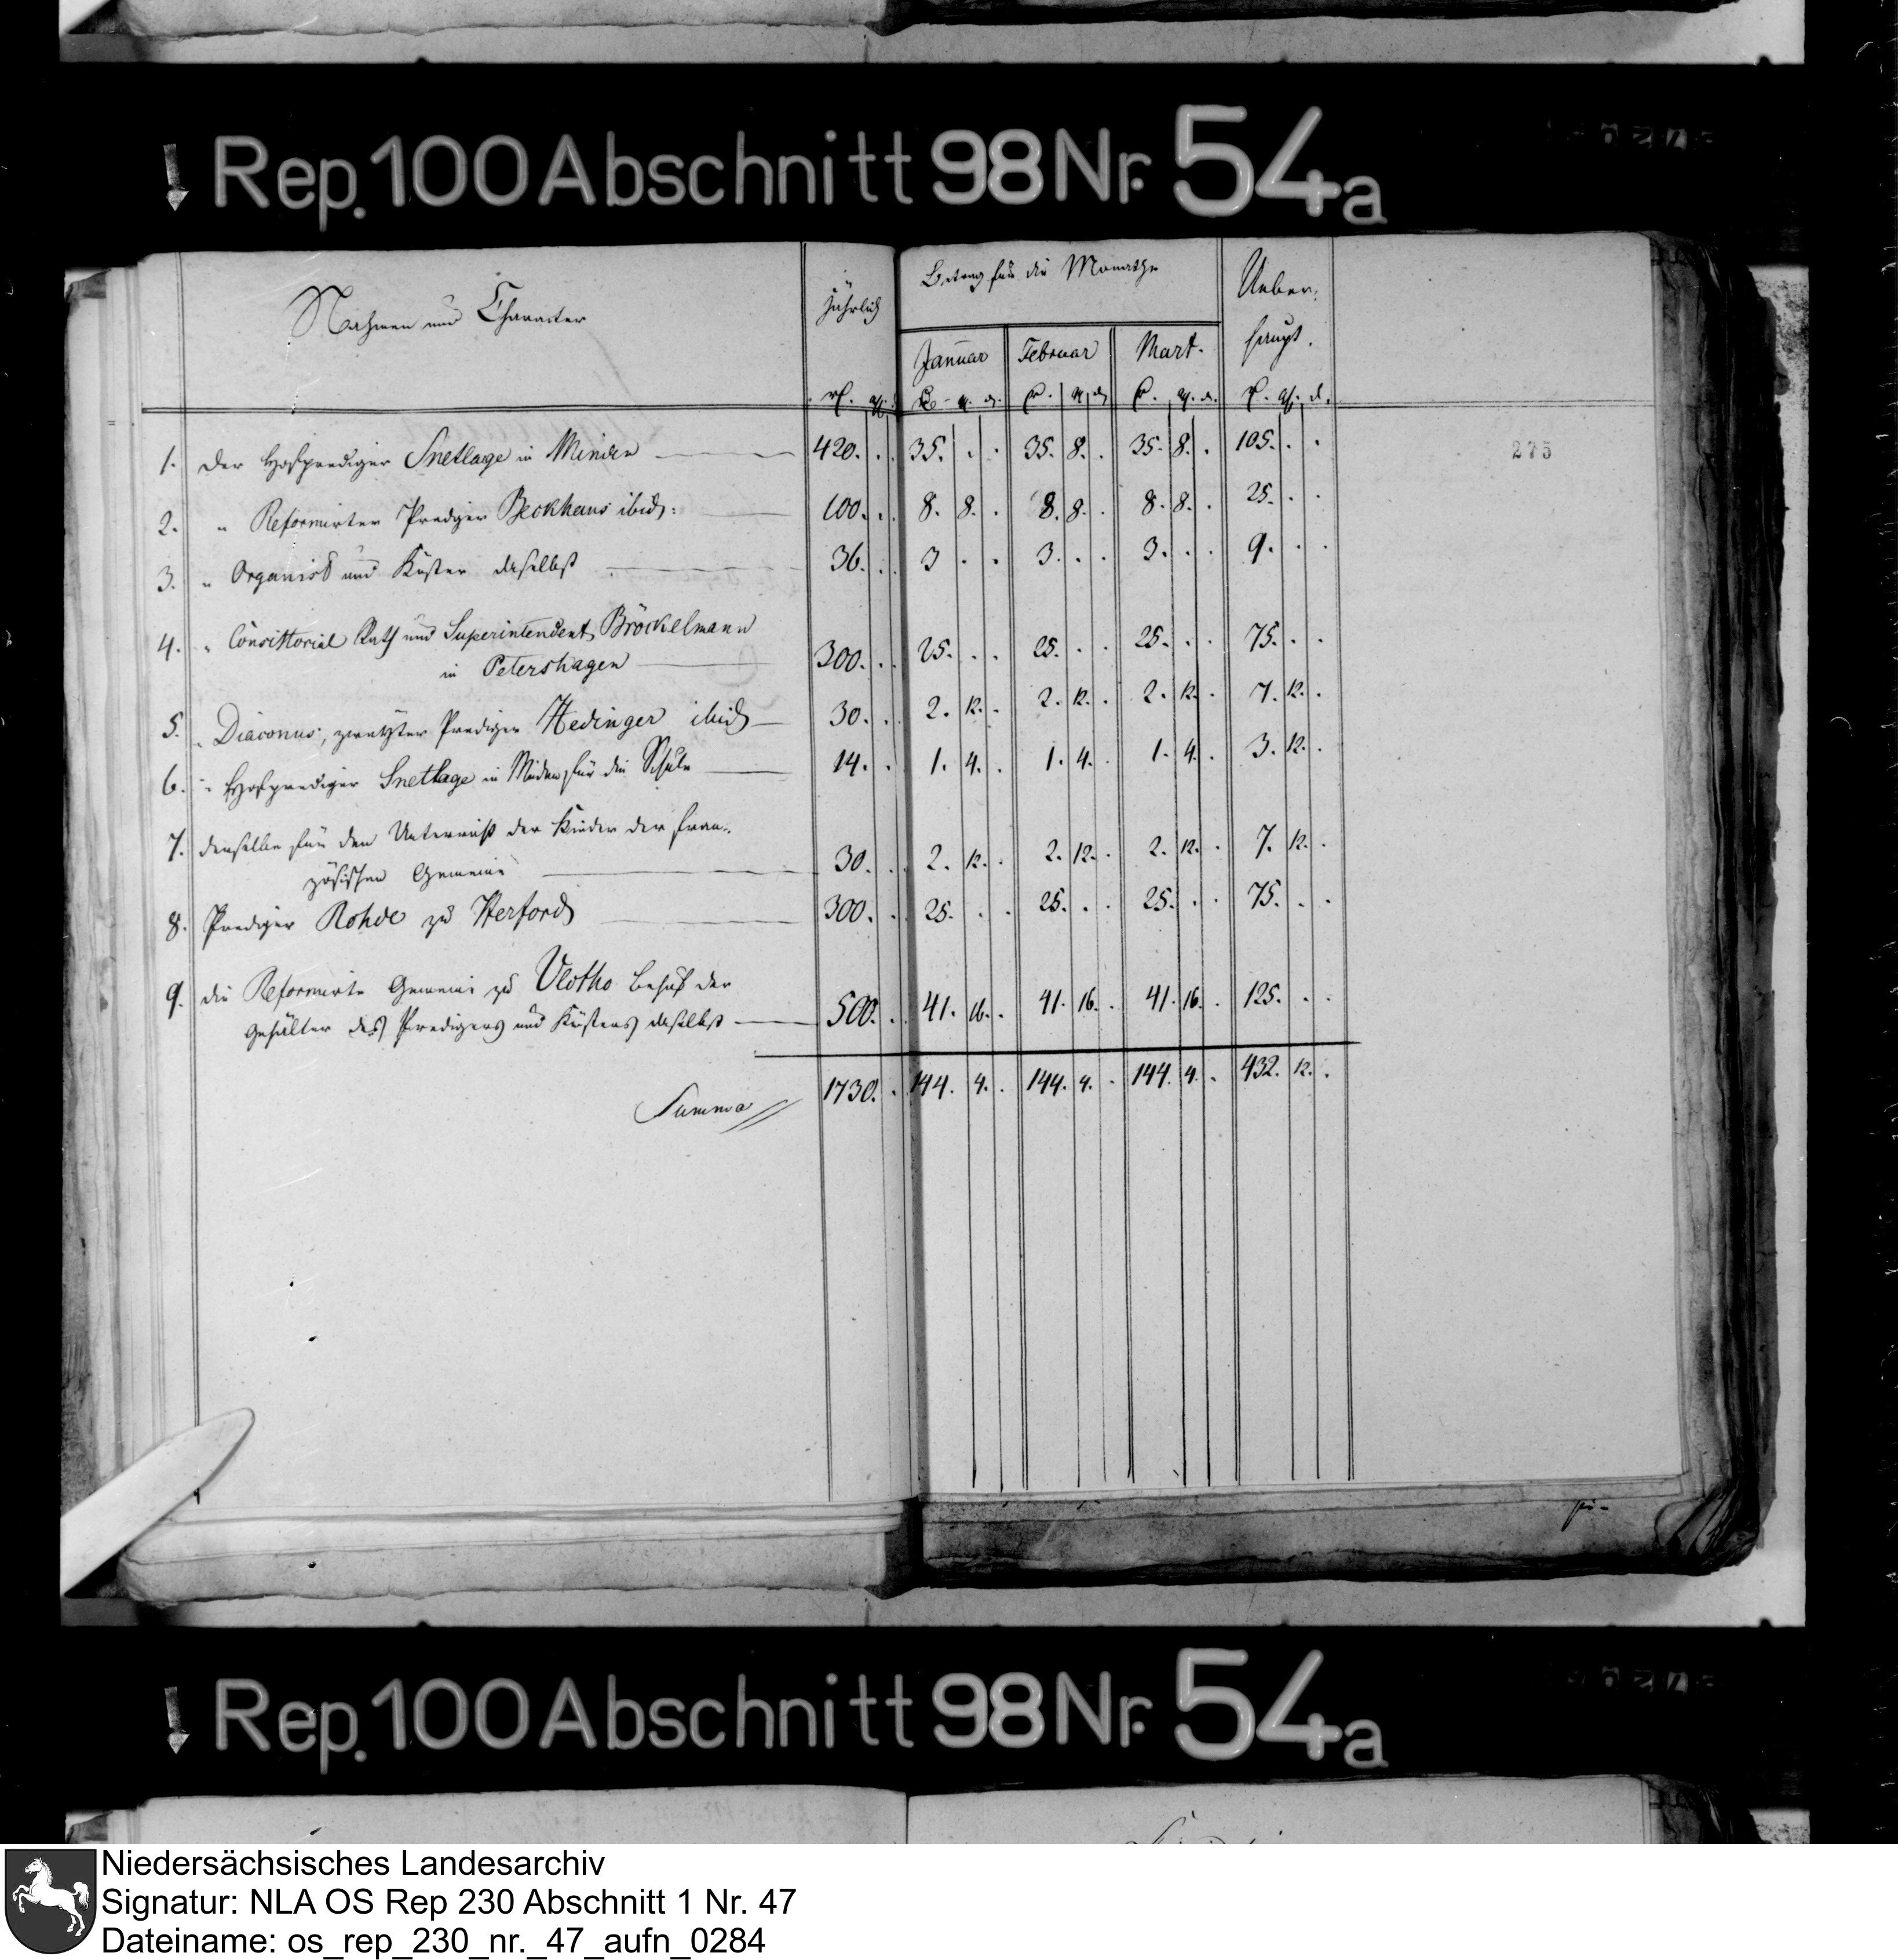 Rep. 100 Abschnitt 98 Nr. 54a
Nahmen und Character
jährlich
Betrag für die Monathe
Ueber-
haupt.
Januar Februar Mart.
275
1. Der Hofprediger Snetlage in Minden 420. . 35. . . 35. 8. . 35. 8. . 105. . .
2. " Reformirter Prediger Beckhaus ibid: 100. . 8. 8. . 8. 8. . 8. 8. . 25. . .
3. " Organist und Küster daselbst 36. . 3 . . 3. . . 3. . . 9. . .
4. " Consistorial Rath und Superintendent Bröckelmann
in Petershagen 300. . 25. . . 25. . . 25. . . 75. . .
5. " Diaconus, zweyter Prediger Hedinger ibid 30. . 2. 12. . 2. 12. . 2. 12. . 7. 12. .
6. " Hofprediger Snetlage in Minden für die Schule 14. . 1. 4. . 1. 4. . 1. 4. . 3. 12. .
7. denselben für den Unterricht der Kinder der fran-
zösischen Gemeine 30. . 2. 12. . 2. 12. . 2. 12. . 7. 12. .
8. Prediger Rohde zu Herford 300. . 25. . . 25. . . 25. . . 75. . .
9. die Reformirte Gemeine zu Vlotho Behuf der
Gehälter des Predigers und Küsters daselbst 500. . 41. 16. . 41. 16. . 41. 16. . 125. . .
Summa 1730. . 144. 4. . 144. 4. . 144. 4. . 432. 12. .
Rep. 100 Abschnitt 98 Nr. 54a
Niedersächsisches Landesarchiv
Signatur: NLA OS Rep 230 Abschnitt 1 Nr. 47
Dateiname: os_rep_230_nr._47_aufn_0284